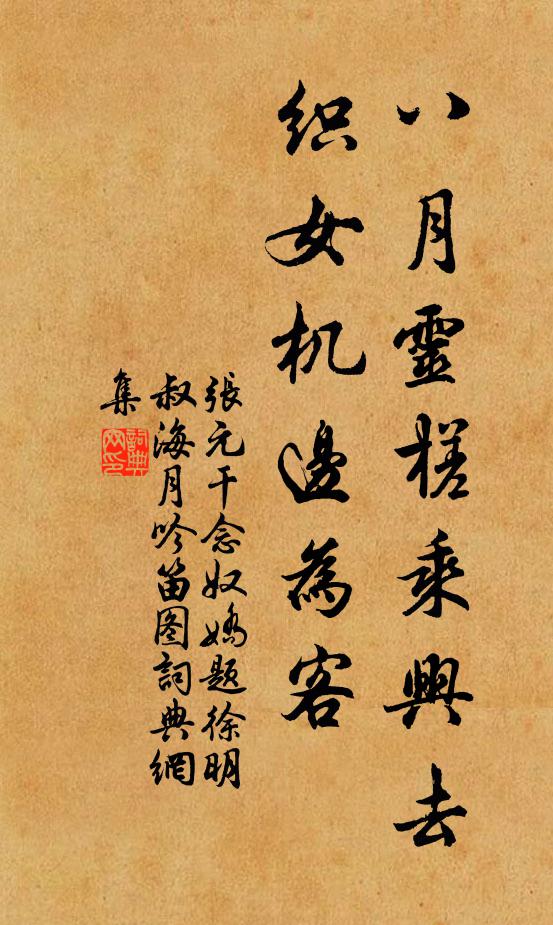 八月靈槎乘興去
织女机邊為客
張元干念奴嬌題徐明
叔海月吟笛图詞典網
集
詞典
网印